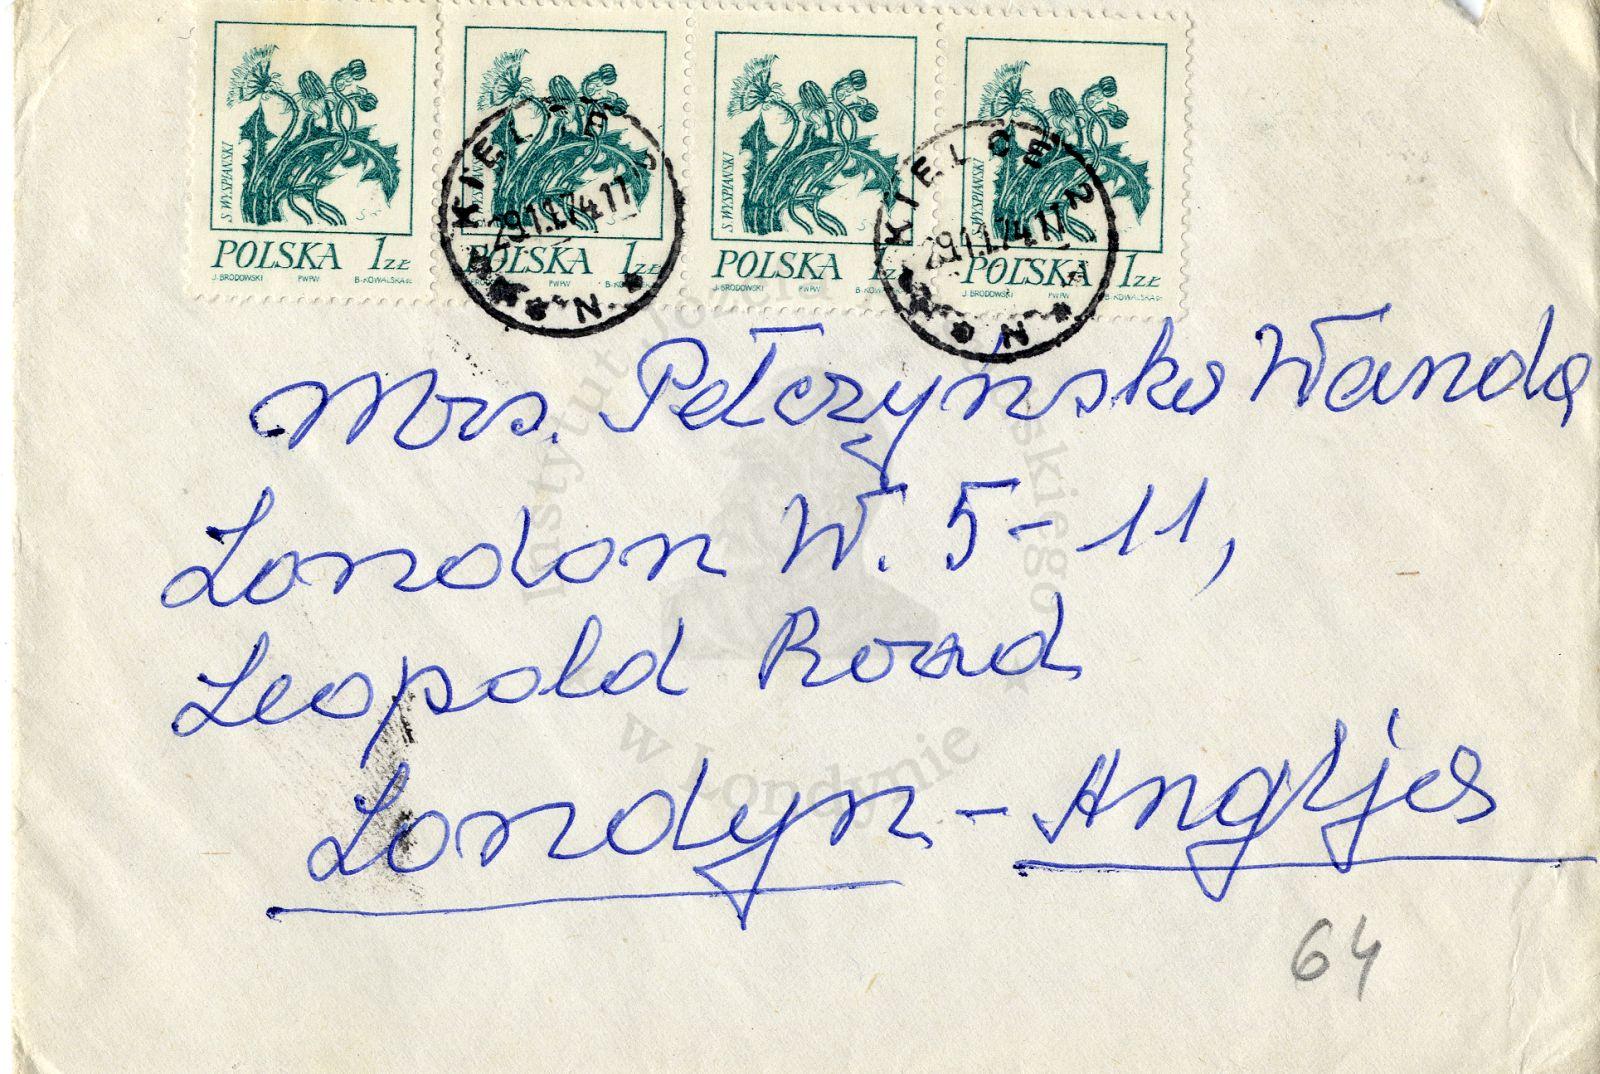 S. WYSPIAŃSKI S. WYSPIAŃSKI S. WYSPIAŃSKI S. WYSPIAŃSKI
POLSKA 1 ZŁ POLSKA 1 ZŁ POLSKA 1 ZŁ POLSKA 1 ZŁ
J. BRODOWSKI PWPW B. KOWALSKA sc. J. BRODOWSKI PWPW B. KO J. BRODOWSKI PWPW B. KOWALSKA sc.
KIELCE 2
29.1.74.17
N
KIELCE 2
29.1.74.17
N
Mrs. Pełczyńska Wanda
London W. 5-11,
Leopold Road
Londyn - Anglja
64
Instytut Józefa skiego
w Londynie